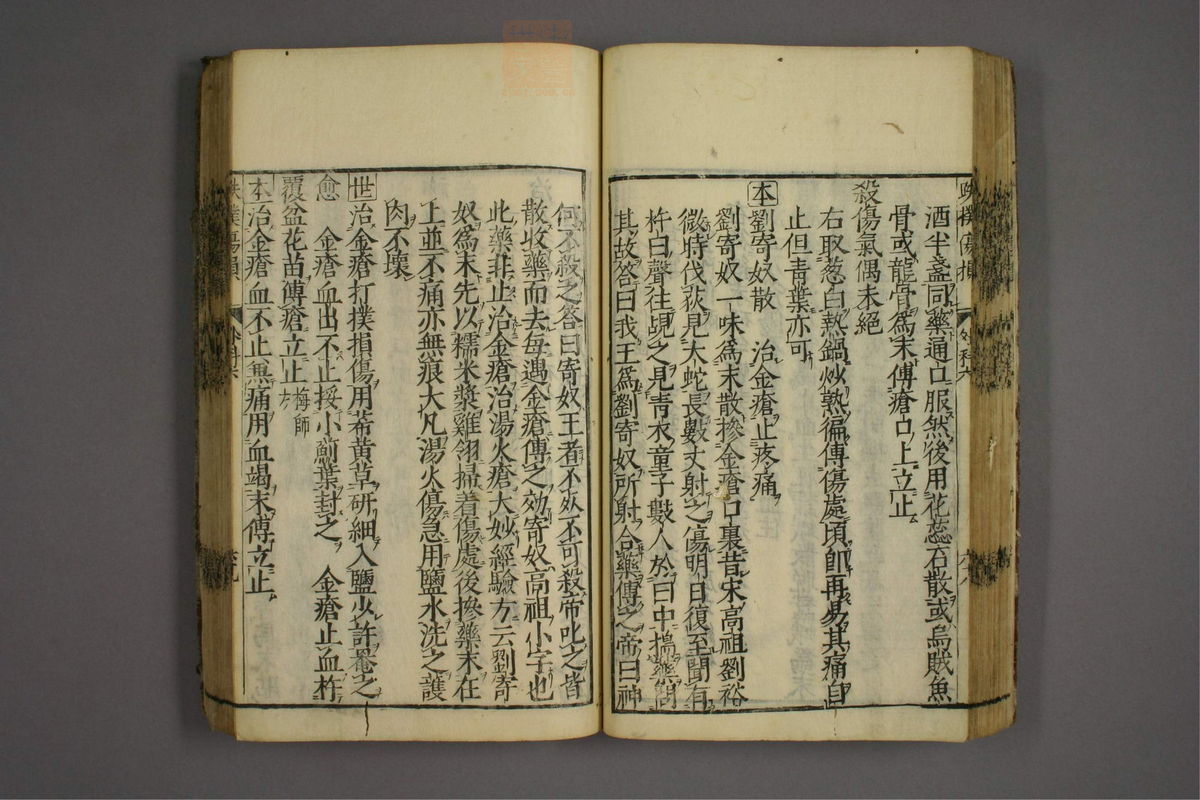 酒半盞同藥通口服然後用花蕊石散或烏賊魚
骨或龍骨爲末傅瘡口上立止
殺傷氣偶未絕
右取葱白熱鍋炒熟徧傅傷處頃卽再易其痛自
止但青葉亦可
本劉寄奴散 治金瘡止疼痛
劉寄奴一味爲末散摻金瘡口裏昔宋高祖劉裕
微時伐荻見大蛇長數丈射之傷明日復至聞有
杵臼聲往覘之見青衣童子數人於臼中搗藥問
其故答曰我王爲劉寄奴所射合藥傅之帝曰神
何不殺之答曰寄奴王者不死不可殺帝叱之皆
散收藥而去每遇金瘡傅之効寄奴高祖小字也
此藥非止治金瘡治湯火瘡大妙經驗方云劉寄
奴爲末先以糯米漿雞翎掃着傷處後摻藥末在
上並不痛亦無痕大凡湯火傷急用鹽水洗之護
肉不壞
世治金瘡打撲損傷用葀黃草研細入鹽少許罨之
愈 金瘡血出不止挼小薊葉封之 金瘡止血杵
覆盆花苗傅瘡立止梅師方
本治金瘡血不止無痛用血竭末傅立止